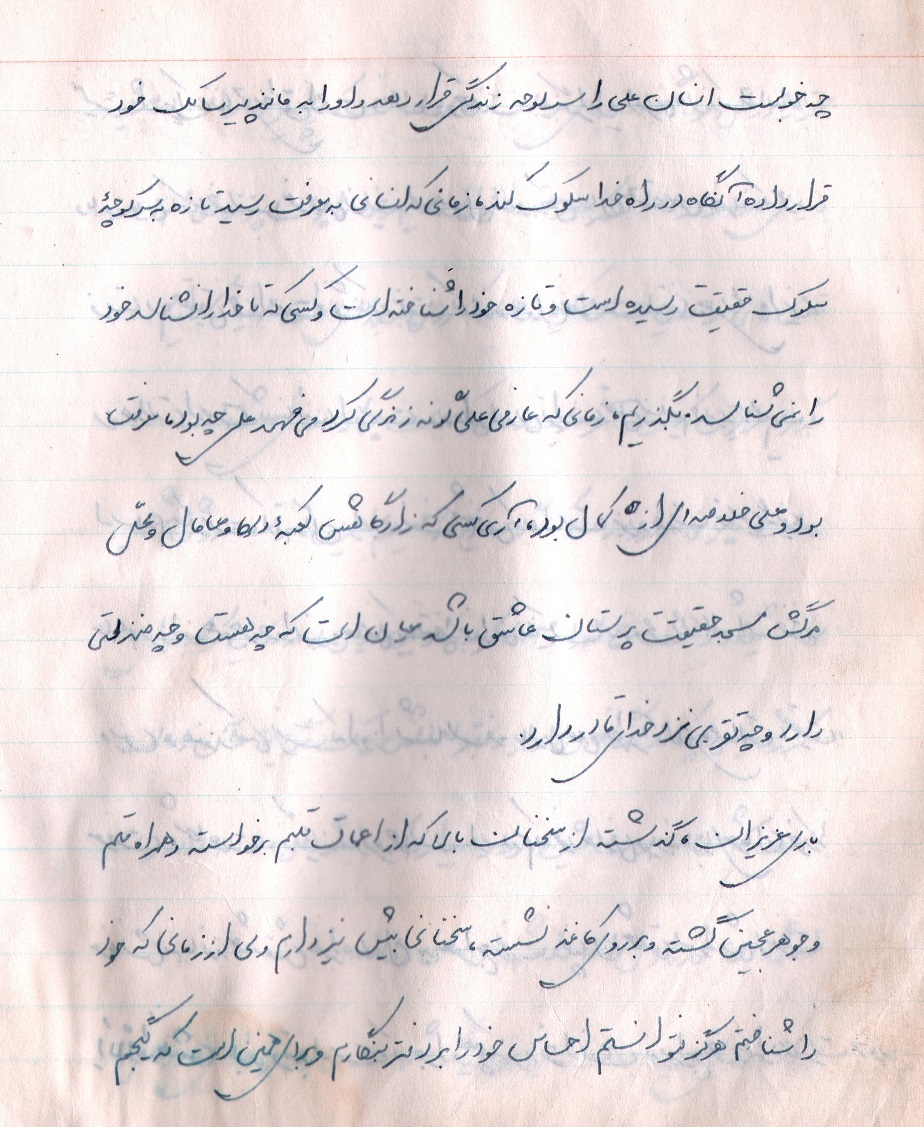 چه خوبست انسان علی را سرلوحه زندگی قرار دهد و او را به مانند پیر سالک خود
قرار داده آنگاه در راه خدا سلوک کند، زمانی که انسانی به معرفت رسید تازه به سر کوچهٔ
سلوک حقیقت رسیده است و تازه خود را شناخته است و کسی که تا خدا را نشناسد خود
را نمی شناسد. بگذریم، زمانی که عارفی علی گونه زندگی کرد می فهمد علی چه بود، معرفت
بود و علی خلاصه ای از کمال بود، آری کسی که زادگاهش کعبهٔ و محل
مرگش مسجد حقیقت پرستان عاشق باشد عیان است که چه هست و چه منزلتی
دارد و چه تقربی نزد خدای قادر دارد.
باری عزیزان، گذشته از سخنان بالا که از اعماق قلبم برخواسته و همراه قلم
و جوهر عجین گشته و بر روی کاغذ نشسته، سخنانی بیش نیز دارم ولی از زمانی که خود
را شناختم هرگز نتوانستم احساس خود را بر دفتر بنگارم و برای همین است که گیجم